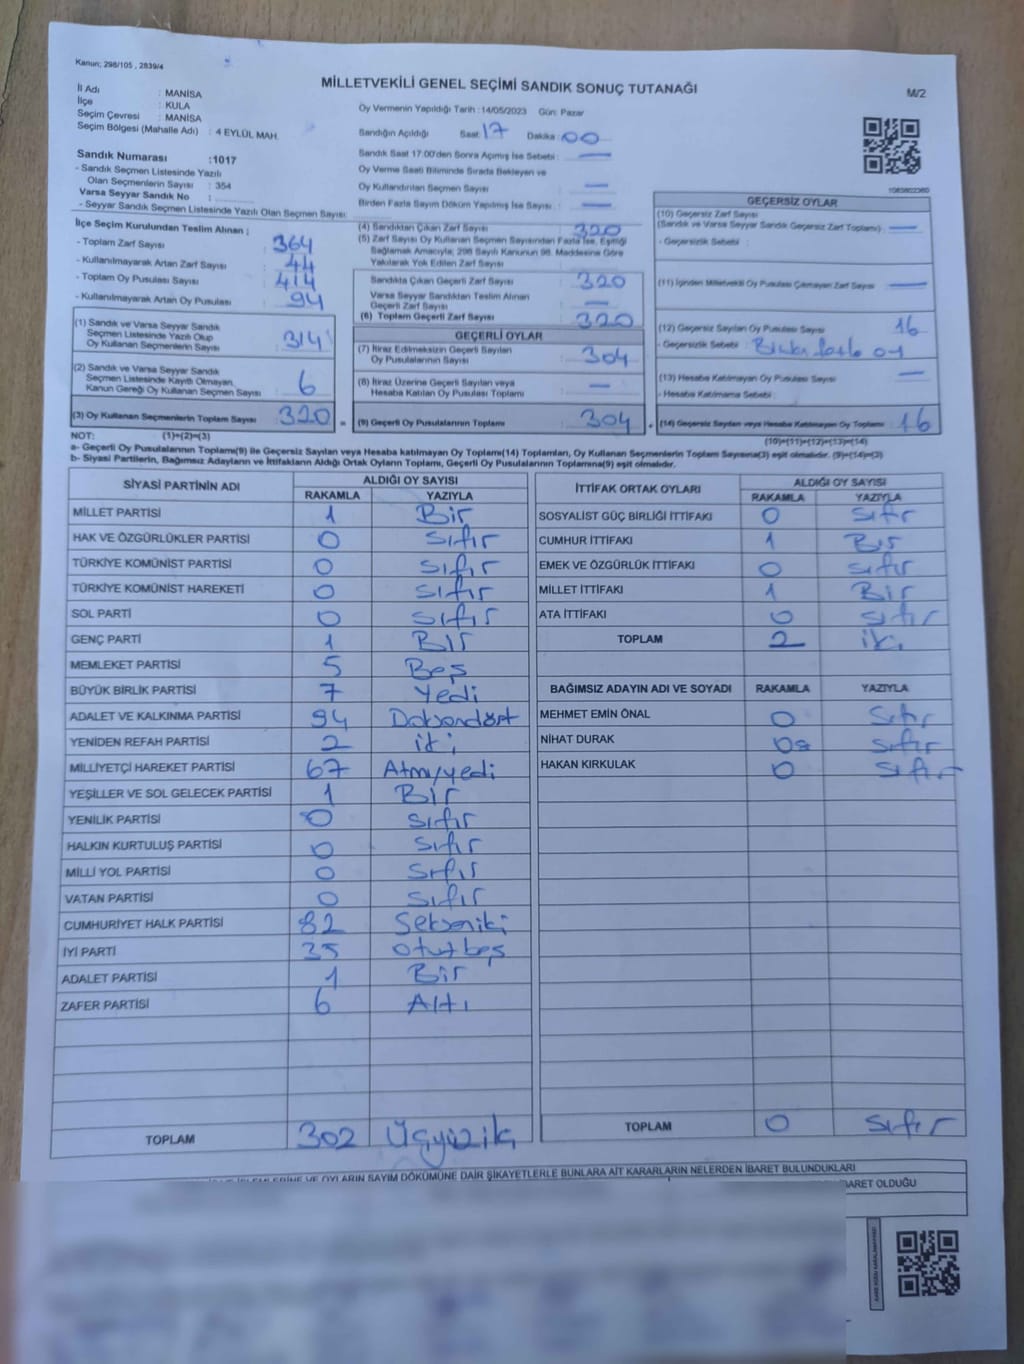 Kanun; 298/105 , 2839/4
MİLLETVEKİLİ GENEL SEÇİMİ SANDIK SONUÇ TUTANAĞI
M/2
İl Adı : MANİSA
İlçe : KULA
Seçim Çevresi : MANİSA
Seçim Bölgesi (Mahalle Adı) : 4 EYLÜL MAH.
Sandık Numarası :1017
- Sandık Seçmen Listesinde Yazılı
Olan Seçmenlerin Sayısı : 354
Varsa Seyyar Sandık No :
- Seyyar Sandık Seçmen Listesinde Yazılı Olan Seçmen Sayısı:
Oy Vermenin Yapıldığı Tarih : 14/05/2023 Gün: Pazar
Sandığın Açıldığı Saat: 17 Dakika : 00
Sandık Saat 17:00'den Sonra Açılmış İse Sebebi : —
Oy Verme Saati Bitiminde Sırada Bekleyen ve
Oy Kullandırılan Seçmen Sayısı : —
Birden Fazla Sayım Döküm Yapılmış İse Sayısı : —
1083802360
İlçe Seçim Kurulundan Teslim Alınan ;
- Toplam Zarf Sayısı : 364
- Kullanılmayarak Artan Zarf Sayısı : 44
- Toplam Oy Pusulası Sayısı : 414
- Kullanılmayarak Artan Oy Pusulası : 94
(1) Sandık ve Varsa Seyyar Sandık
Seçmen Listesinde Yazılı Olup
Oy Kullanan Seçmenlerin Sayısı : 314
(2) Sandık ve Varsa Seyyar Sandık
Seçmen Listesinde Kayıtlı Olmayan,
Kanun Gereği Oy Kullanan Seçmen Sayısı : 6
(3) Oy Kullanan Seçmenlerin Toplam Sayısı : 320 =
(4) Sandıktan Çıkan Zarf Sayısı : 320
(5) Zarf Sayısı Oy Kullanan Seçmen Sayısından Fazla İse, Eşitliği
Sağlamak Amacıyla; 298 Sayılı Kanunun 98. Maddesine Göre
Yakılarak Yok Edilen Zarf Sayısı :
Sandıkta Çıkan Geçerli Zarf Sayısı : 320
Varsa Seyyar Sandıktan Teslim Alınan
Geçerli Zarf Sayısı : —
(6) Toplam Geçerli Zarf Sayısı : 320
GEÇERLİ OYLAR
(7) İtiraz Edilmeksizin Geçerli Sayılan
Oy Pusulalarının Sayısı : 304
(8) İtiraz Üzerine Geçerli Sayılan veya
Hesaba Katılan Oy Pusulası Toplamı : —
(9) Geçerli Oy Pusulalarının Toplamı : 304 +
GEÇERSİZ OYLAR
(10) Geçersiz Zarf Sayısı
(Sandık ve Varsa Seyyar Sandık Geçersiz Zarf Toplamı) : —
- Geçersizlik Sebebi :
(11) İçinden Milletvekili Oy Pusulası Çıkmayan Zarf Sayısı : —
(12) Geçersiz Sayılan Oy Pusulası Sayısı : 16
- Geçersizlik Sebebi : Birden fazla oy
(13) Hesaba Katılmayan Oy Pusulası Sayısı : —
- Hesaba Katılmama Sebebi :
(14) Geçersiz Sayılan veya Hesaba Katılmayan Oy Toplamı : 16
NOT: (1)+(2)=(3) (10)+(11)+(12)+(13)=(14)
a- Geçerli Oy Pusulalarının Toplamı(9) ile Geçersiz Sayılan veya Hesaba katılmayan Oy Toplamı(14) Toplamları, Oy Kullanan Seçmenlerin Toplam Sayısına(3) eşit olmalıdır. (9)+(14)=(3)
b- Siyasi Partilerin, Bağımsız Adayların ve İttifakların Aldığı Ortak Oyların Toplamı, Geçerli Oy Pusulalarının Toplamına(9) eşit olmalıdır.
SİYASİ PARTİNİN ADI ALDIĞI OY SAYISI
RAKAMLA YAZIYLA
MİLLET PARTİSİ 1 Bir
HAK VE ÖZGÜRLÜKLER PARTİSİ 0 Sıfır
TÜRKİYE KOMÜNİST PARTİSİ 0 Sıfır
TÜRKİYE KOMÜNİST HAREKETİ 0 Sıfır
SOL PARTİ 0 Sıfır
GENÇ PARTİ 1 Bir
MEMLEKET PARTİSİ 5 Beş
BÜYÜK BİRLİK PARTİSİ 7 Yedi
ADALET VE KALKINMA PARTİSİ 94 Doksandört
YENİDEN REFAH PARTİSİ 2 iki
MİLLİYETÇİ HAREKET PARTİSİ 67 Atmıyedi
YEŞİLLER VE SOL GELECEK PARTİSİ 1 Bir
YENİLİK PARTİSİ 0 Sıfır
HALKIN KURTULUŞ PARTİSİ 0 Sıfır
MİLLİ YOL PARTİSİ 0 Sıfır
VATAN PARTİSİ 0 Sıfır
CUMHURİYET HALK PARTİSİ 82 Sekseniki
İYİ PARTİ 35 Otuzbeş
ADALET PARTİSİ 1 Bir
ZAFER PARTİSİ 6 Altı
TOPLAM 302 Üçyüziki
İTTİFAK ORTAK OYLARI ALDIĞI OY SAYISI
RAKAMLA YAZIYLA
SOSYALİST GÜÇ BİRLİĞİ İTTİFAKI 0 Sıfır
CUMHUR İTTİFAKI 1 Bir
EMEK VE ÖZGÜRLÜK İTTİFAKI 0 Sıfır
MİLLET İTTİFAKI 1 Bir
ATA İTTİFAKI 0 Sıfır
TOPLAM 2 iki
BAĞIMSIZ ADAYIN ADI VE SOYADI RAKAMLA YAZIYLA
MEHMET EMİN ÖNAL 0 Sıfır
NİHAT DURAK 0 Sıfır
HAKAN KIRKULAK 0 Sıfır
TOPLAM 0 Sıfır
İŞLEMLERİNE VE OYLARIN SAYIM DÖKÜMÜNE DAİR ŞİKAYETLERLE BUNLARA AİT KARARLARIN NELERDEN İBARET BULUNDUKLARI
BARET OLDUĞU